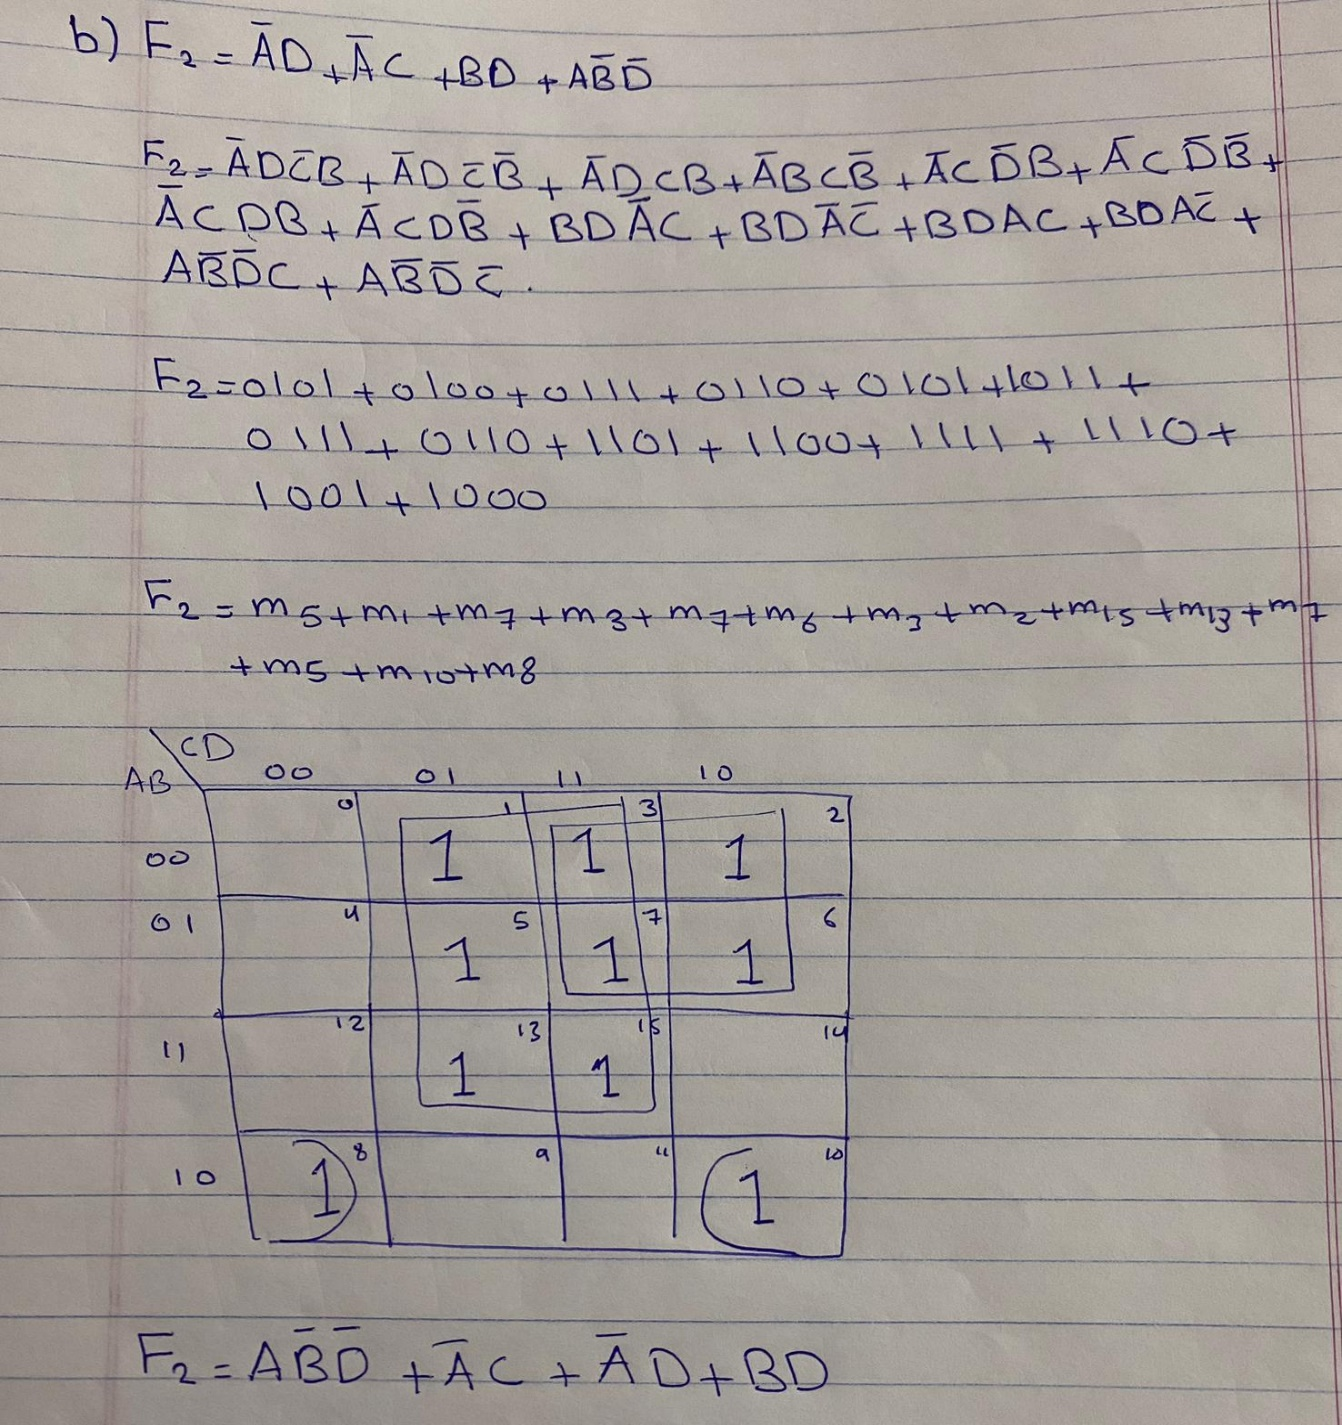 b) F₂ = A̅D + A̅C + BD + AB̅D̅
F₂ = A̅DC̅B + A̅DC̅B̅ + A̅DCB + A̅BCB̅ + A̅CD̅B + A̅CD̅B̅ +
A̅CDB + A̅CDB̅ + BDA̅C + BDA̅C̅ + BDAC + BDAC̅ +
AB̅D̅C + AB̅D̅C̅.
F₂ = 0101 + 0100 + 0111 + 0110 + 0101 + 1011 +
0111 + 0110 + 1101 + 1100 + 1111 + 1110 +
1001 + 1000
F₂ = m5 + m1 + m7 + m3 + m7 + m6 + m3 + m2 + m15 + m13 + m7
+ m5 + m10 + m8
CD
AB 00 01 11 10
0 1 3 2
00 1 1 1
01 4 5 7 6
1 1 1
12 13 15 14
11 1 1
8 9 11 10
10 1 1
F₂ = AB̅D̅ + A̅C + A̅D + BD